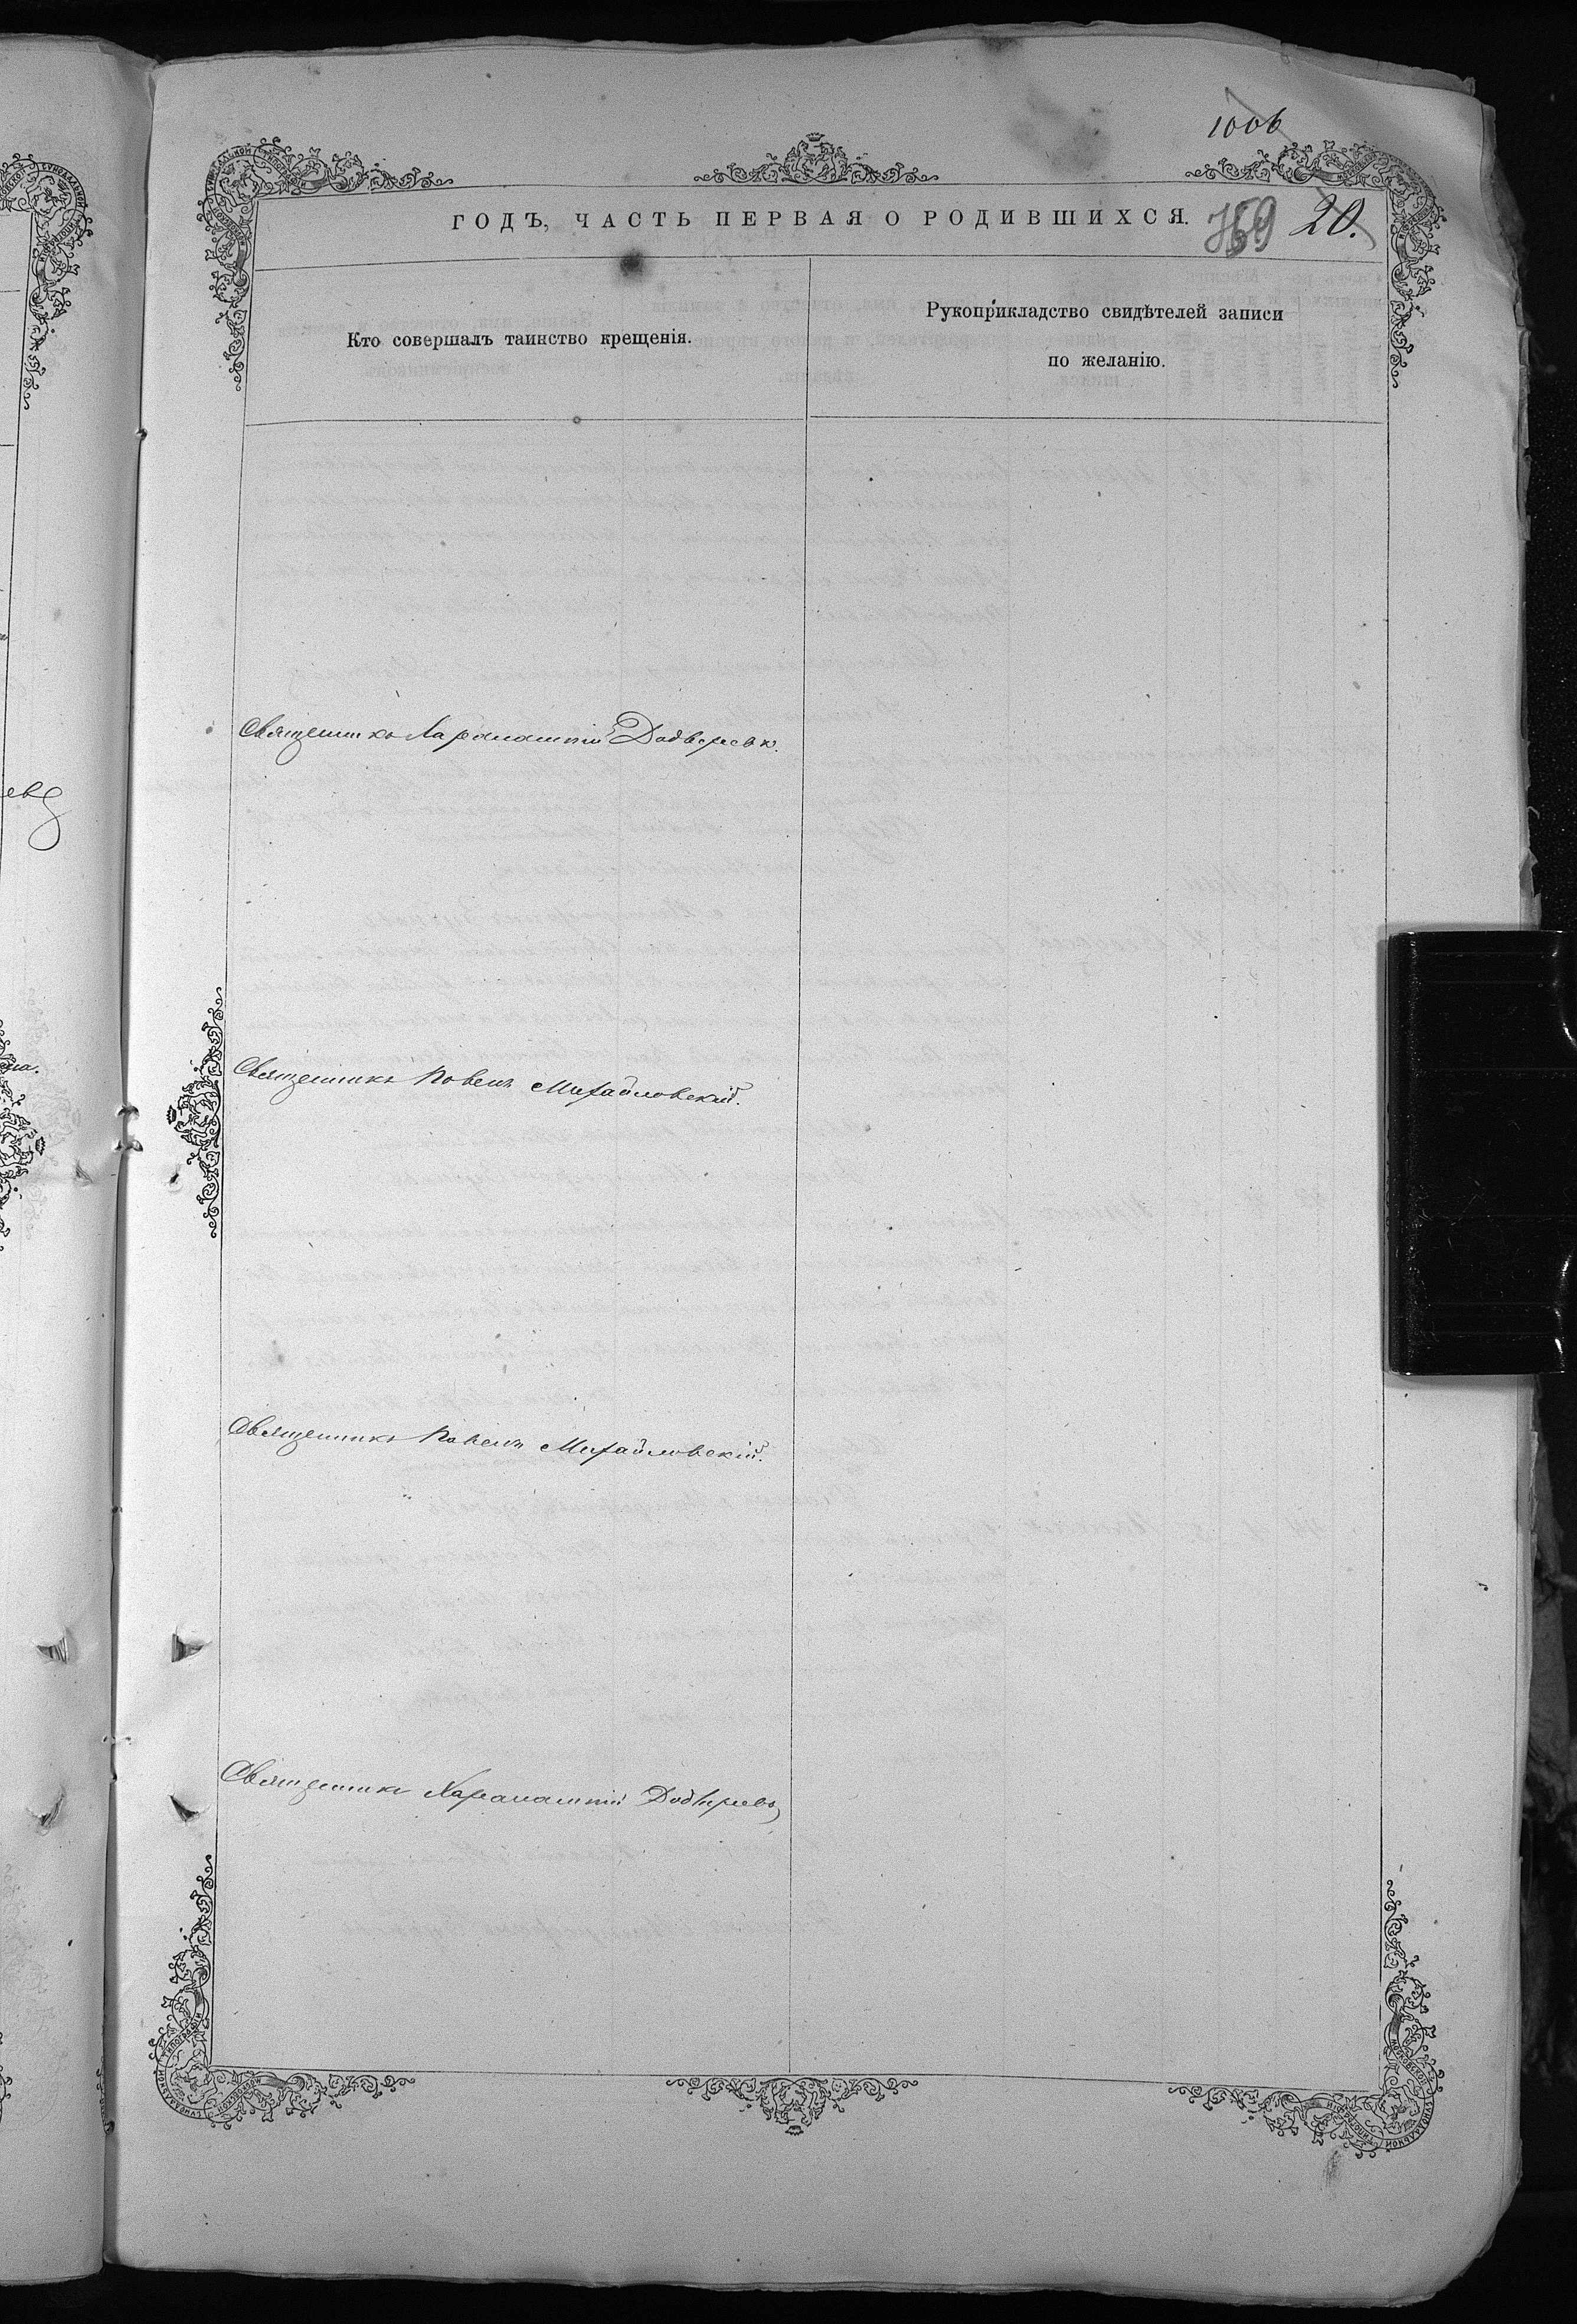 1006
ГОДЪ, ЧАСТЬ ПЕРВАЯ О РОДИВШИХСЯ. 759 20.
Кто совершалъ таинство крещенія.
Рукоприкладство свидѣтелей записи
по желанію.
Священникъ Харалампій
Священникъ Павелъ Михайловскій.
Священникъ Павелъ Михайловскій.
Священникъ Харалампій